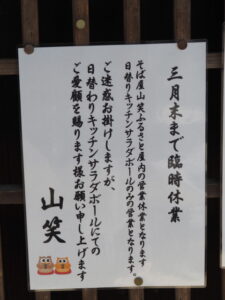 三月末まで臨時休業
そば屋山笑ふるさと屋内の営業休業となります
日替りキッチンサラダボールのみの営業となります。
ご迷惑お掛けしますが、
日替わりキッチンサラダボールにての
ご愛顧を賜ります様お願い申し上げます
山笑